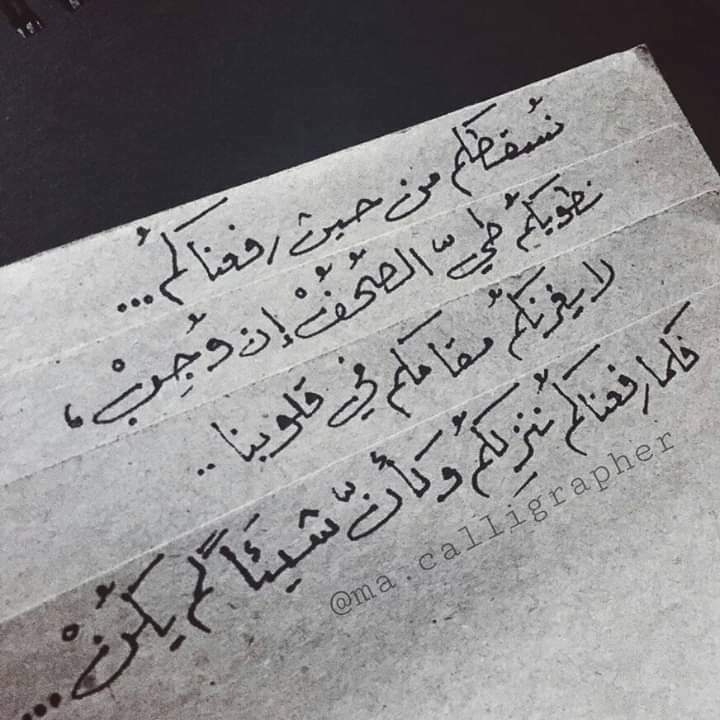 نُسقطكم من حيث رفعناكمُ...
نطويكمُ طيّ الصُحُفْ إن وُجِبْ ،
لا يغرنكمُ مقامكم في قلوبنا ..
فكما رفعناكم نُنزِلكمُ وكأنّ شيئاً لم يكُنْ...
@ma.calligrapher